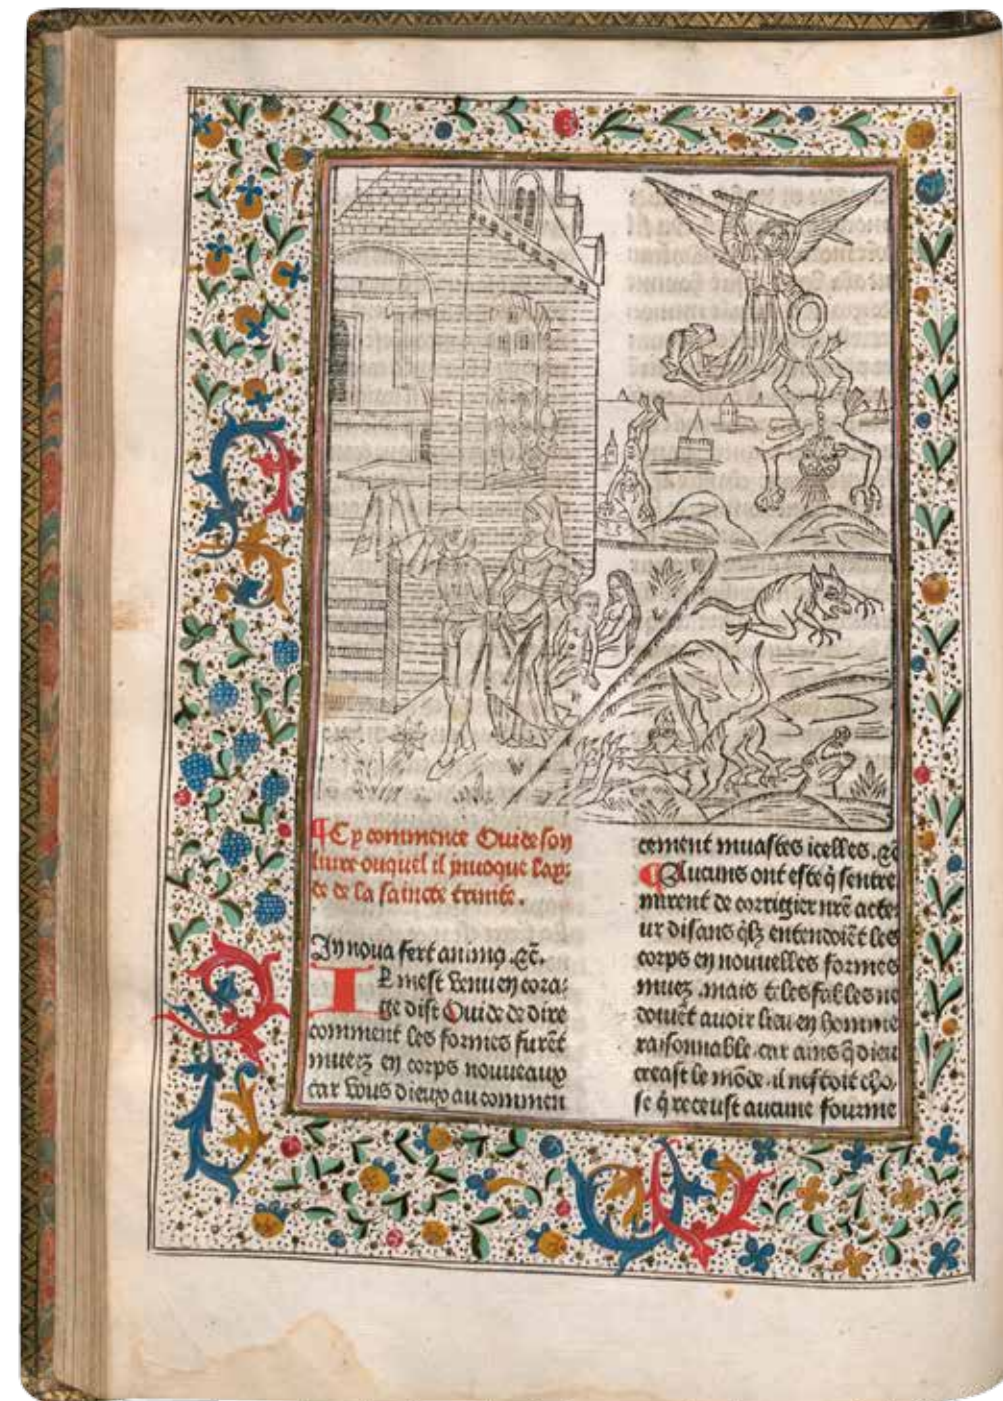 ¶Cy commence Ouide son
liure ouquel il inuoque lay:
de de la saincte trinite.
In noua fert animꝰ .⁊c̃.
IL mest venu en cora:
ge dist Ouide de dire
comment les formes furẽt
muees en corps nouueaux
car vous dieux au commen
cement muastes icelles .⁊c̃
¶Aucuns ont este q̃ sentre
mirent de corrigier nr̃e acte
ur disans q̃lz entendoiẽt les
corps en nouuelles formes
muez .mais t̃les fables ne
doiuẽt auoir lieu en homme
raisonnable .car ains q̃ dieu
creast le mõde .il nestoit cho
se q̃ receust aucune fourme